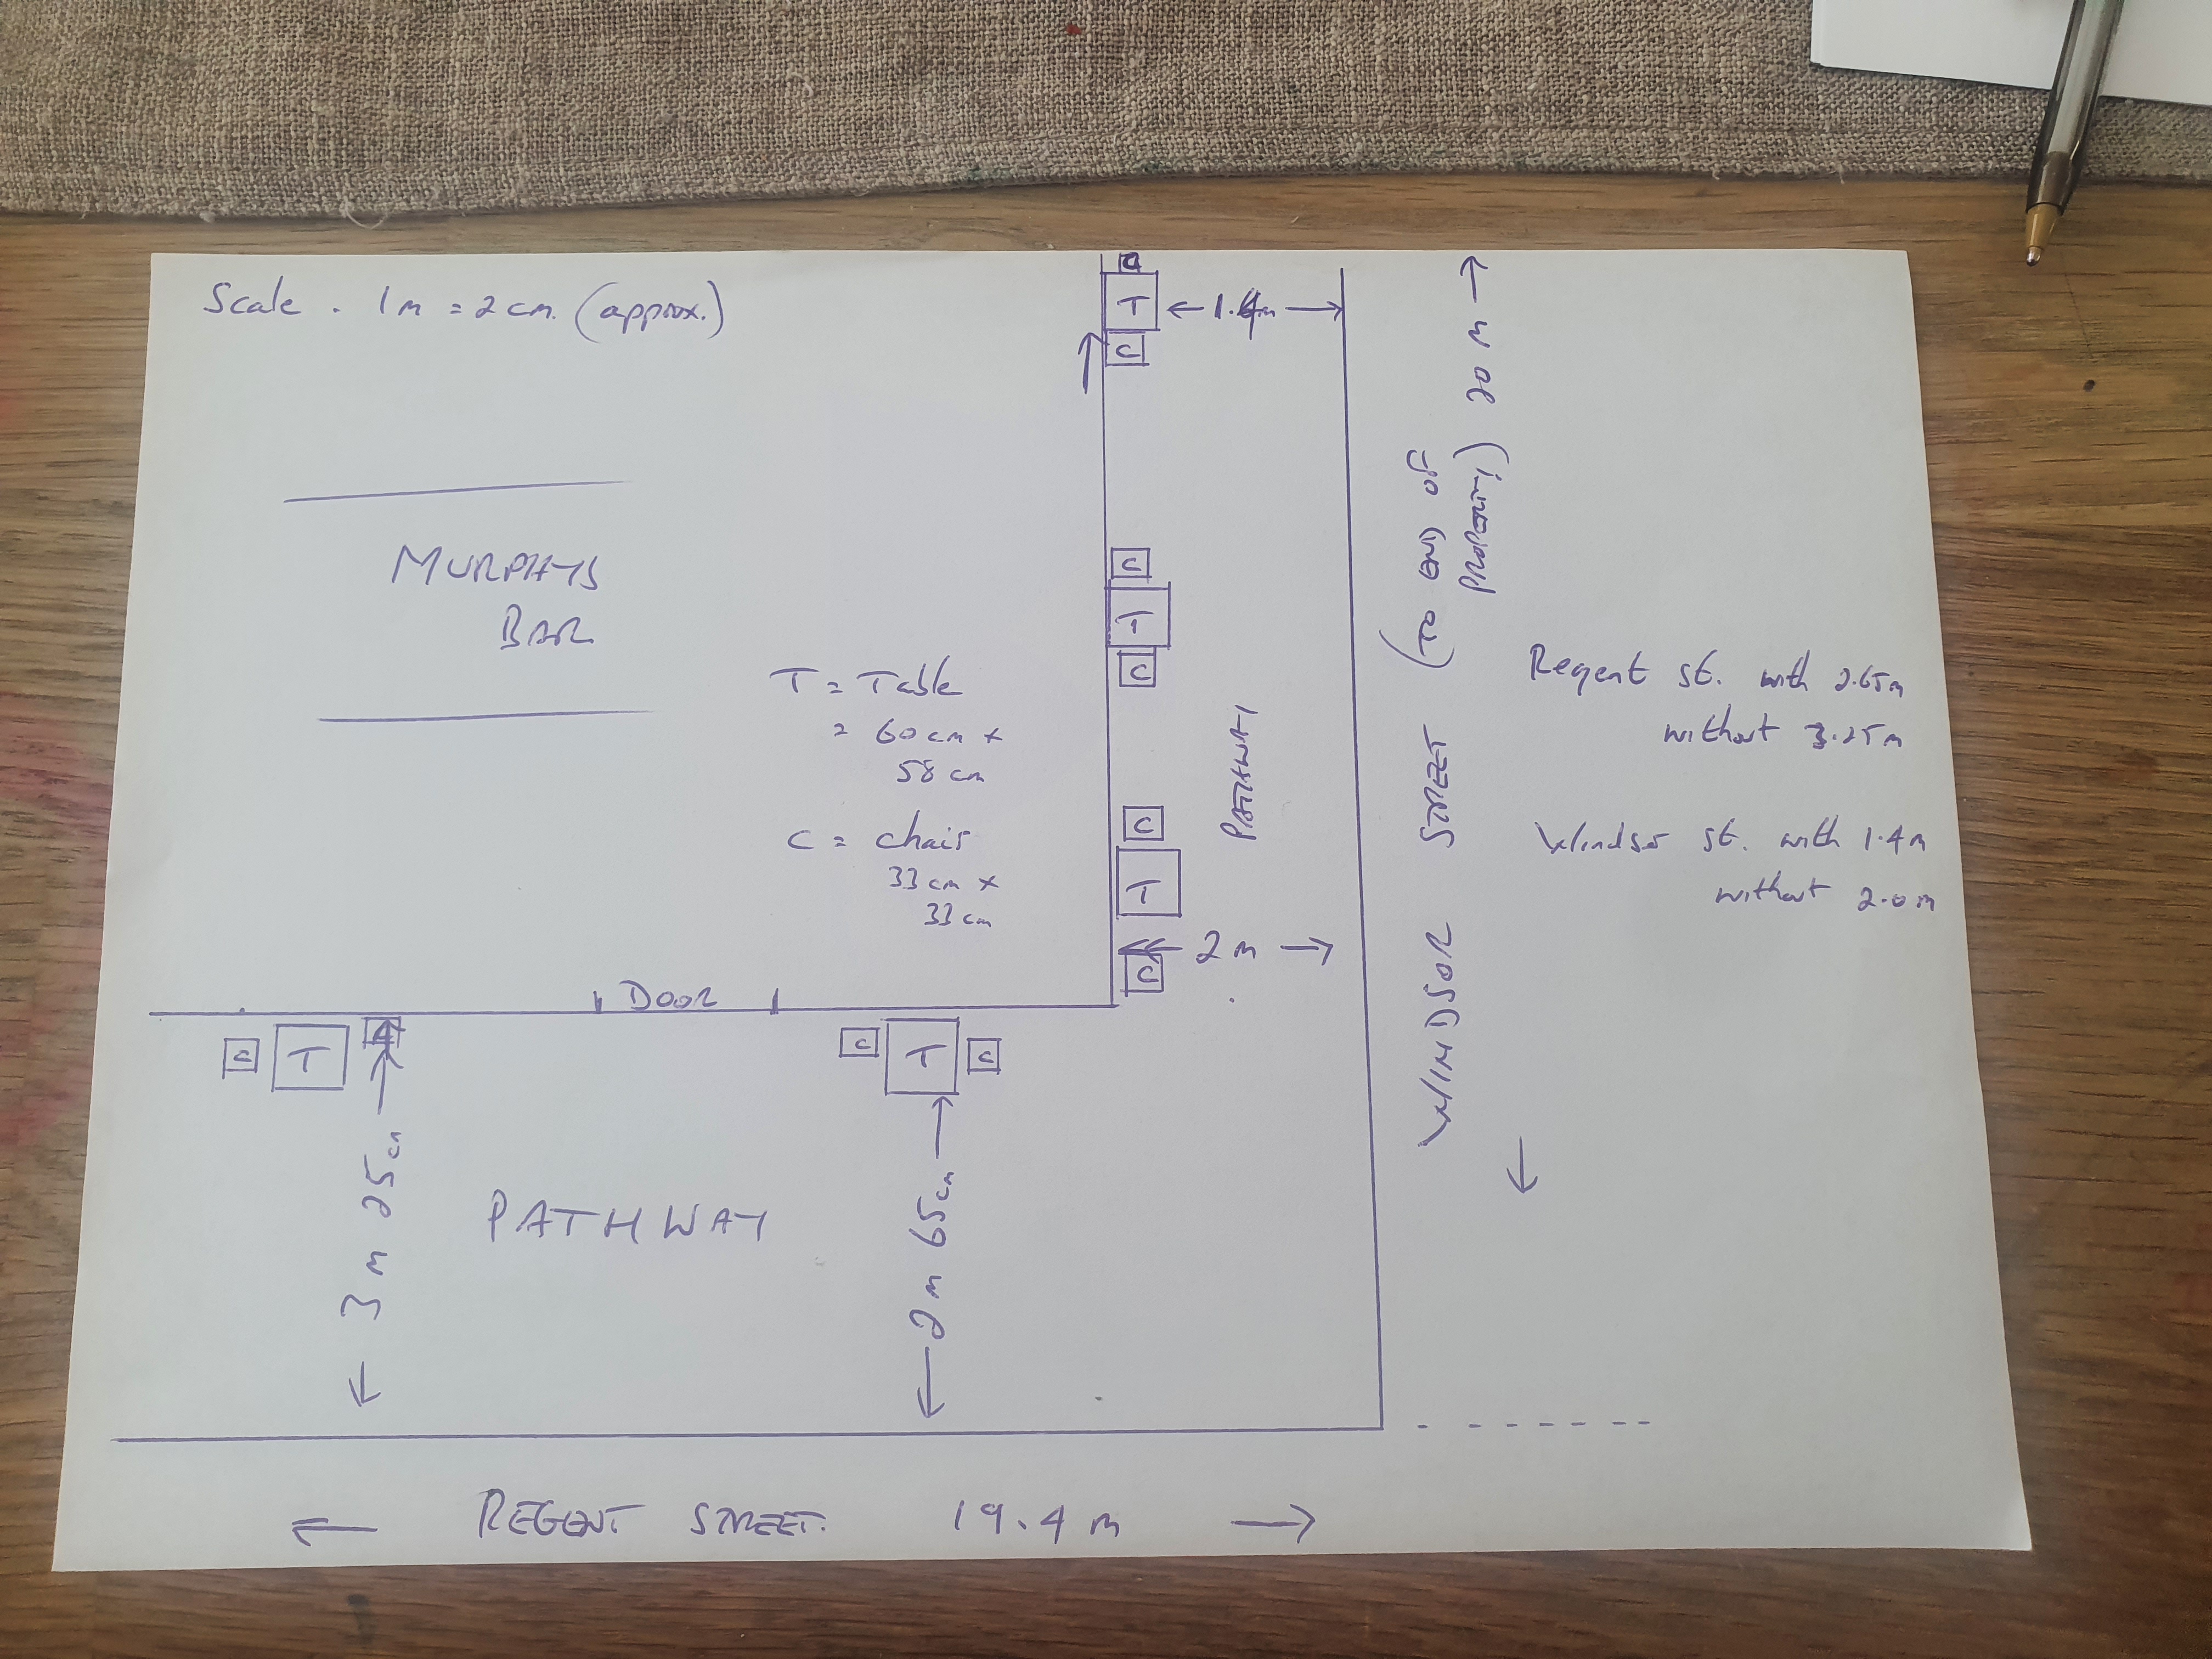 Scale . 1m = 2cm. (approx.)
C
T
← 1.4m →
C
(TO END OF
PROPERTY) 20 M →
MURPHYS
BAR
C
T
C
T = Table
= 60cm x
58 cm
C = chair
33cm x
33cm
C
T
← 2 m →
C
PATHWAY
WINDSOR STREET
Regent st. with 2.65m
without 3.25m
Windsor st. with 1.4m
without 2.0m
DOOR
C T C
C T C
3 m 25cm
2 m 65cm
PATHWAY
← REGENT STREET. 19.4 m →